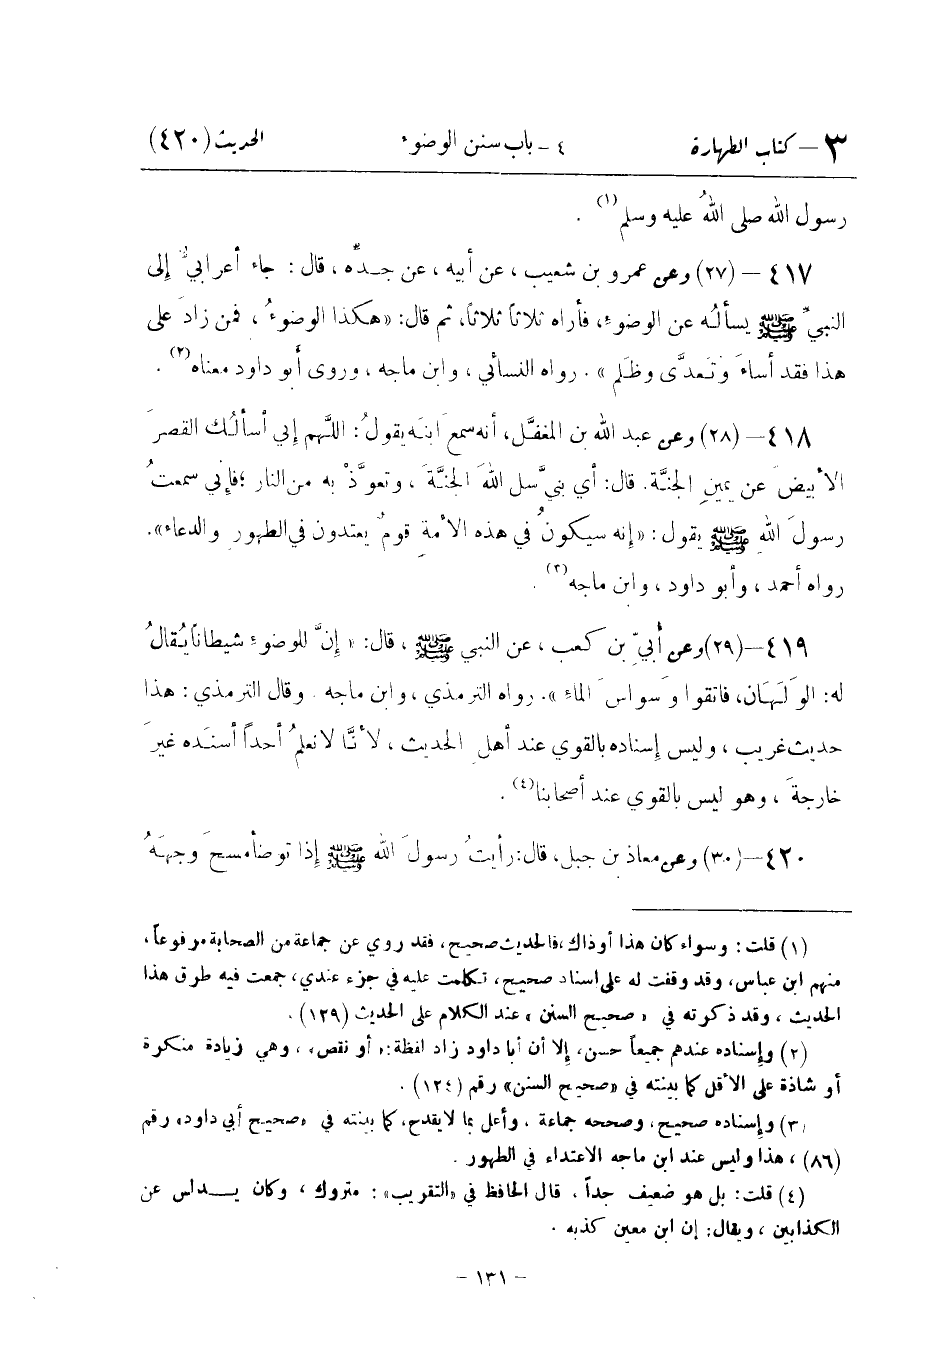 ٣ – كتاب الطهارة ٤ – باب سنن الوضوء الحديث (٤٢٠)
رسول الله صلى اللهُ عليه وسلم(١) .
٤١٧ – (٢٧) وعن عمرو بن شعيب ، عن أبيه ، عن جدِّه ، قال : جاء أعرابيٌّ إلى
النبيِّ ﷺ يسألُه عن الوضوء، فأراه ثلاثاً ثلاثاً، ثم قال: «هكذا الوضوءُ ، فمن زادَ على
هذا فقد أساءَ وتَعدَّى وظَلم » . رواه النسائي ، وابن ماجه ، وروى أبو داود معناه(٢) .
٤١٨ – (٢٨) وعن عبد الله بن المغفَّل، أنه سمعَ ابنَه يقولُ: اللَّهم إني أسألُك القصرَ
الأبيضَ عن يمينِ الجنَّة. قال: أي بنيَّ سل اللهَ الجنَّةَ ، وتعوَّذْ به من النار ؛ فإني سمعتُ
رسولَ اللهِ ﷺ يقول : « إنه سيكونُ في هذه الأمةِ قومٌ يعتدون في الطهور والدعاء».
رواه أحمد ، وأبو داود ، وابن ماجه(٣) .
٤١٩ – (٢٩) وعن أُبيِّ بن كعب ، عن النبي ﷺ ، قال: « إنَّ للوضوءِ شيطاناً يُقالُ
له: الوَلَهان، فاتقوا وَسواسَ الماء ». رواه الترمذي ، وابن ماجه . وقال الترمذي : هذا
حديث غريب ، وليس إسناده بالقوي عند أهل الحديث ، لأنَّا لا نعلمُ أحداً أسنَده غيرَ
خارجةَ ، وهو ليس بالقوي عند أصحابنا(٤) .
٤٢٠ – (٣٠) وعن معاذ بن جبل، قال: رأيتُ رسولَ الله ﷺ إذا توضأ مسحَ وجهَهُ
(١) قلت : وسواء كان هذا أو ذاك، فالحديث صحيح، فقد روي عن جماعة من الصحابة مرفوعاً،
منهم ابن عباس، وقد وقفت له على اسناد صحيح، تكلمت عليه في جزء عندي، جمعت فيه طرق هذا
الحديث ، وقد ذكرته في « صحيح السنن » عند الكلام على الحديث (١٢٩) .
(٢) وإسناده عندهم جميعاً حسن، إلا أن أبا داود زاد لفظة: « أو نقص» ، وهي زيادة منكرة
أو شاذة على الأقل كما بينته في «صحيح السنن» رقم (١٢٤) .
(٣) وإسناده صحيح، وصححه جماعة ، وأعل بما لا يقدح، كما بينته في «صحيح أبي داود» رقم
(٨٦) ، هذا وليس عند ابن ماجه الاعتداء في الطهور .
(٤) قلت : بل هو ضعيف جداً ، قال الحافظ في «التقريب» : متروك ، وكان يدلس عن
الكذابين ، ويقال: إن ابن معين كذبه .
– ١٣١ –